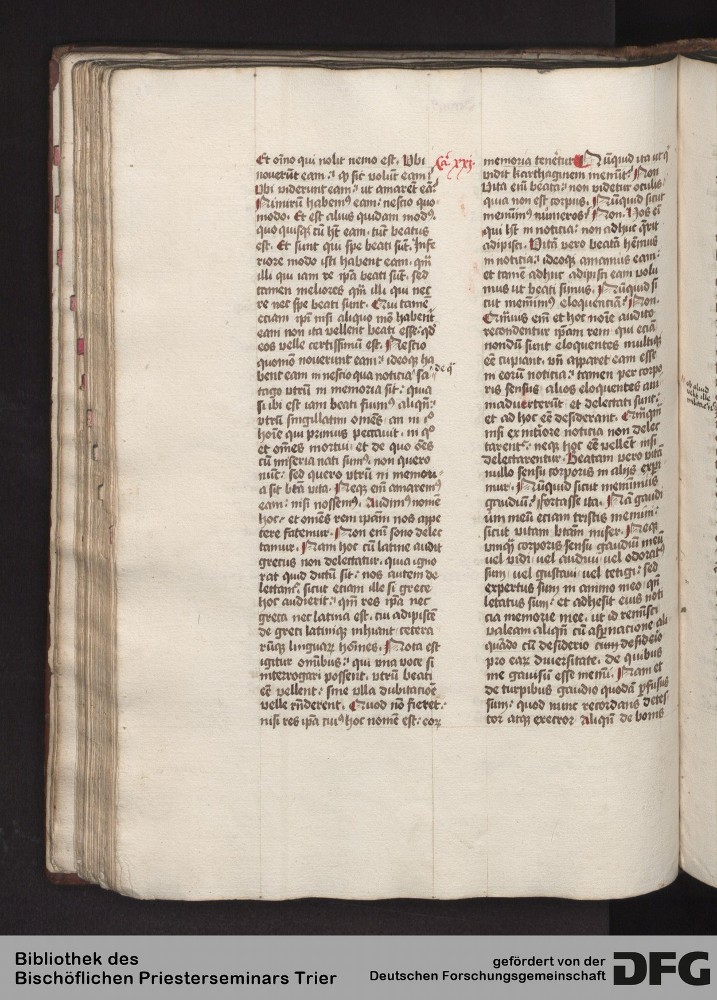 Et oīno qui nolit nemo est. Vbi
nouerūt eam? qͥ sic volūt eam?
Vbi viderunt eam? ut amarēt eā?
Nimirū habemꝰ eam: nescio quo
modo. Et est alius quidam modꝰ.
quo quisqꝫ cū hꝫ eam. tūc beatus
est. Et sunt qui spe beati sūt. Infe
riore modo isti habent eam. qm̄
illi qui iam re ip̄a beati sūt. sed
tamen meliores qm̄ illi qui nec
re nec spe beati sunt. Qui tamē
eciam ip̄i nisi aliquo mō haberēt
eam non ita vellent beati esse: qd̓
eos velle certissimū est. Nescio
quomō nouerunt eam: ideoqꝫ ha
bent eam in nescio qua noticia: sa
de qͣ
tago vtrū in memoria sit: quia
si ibi est iam beati fuimꝰ aliqn̄:
vtrū singillatim omēs. an in eo
hoīe qui primus peccauit. in quo
et omēs mortui. et de quo oēs
cū miseria nati sumꝰ. non quero
nūc: sed quero vtrū in memori
a sit btā vita. Neqꝫ em̄ amaremꝰ
eam: nisi nossemꝰ. Audimꝰ nomē
hoc: et omēs rem ipsam nos appe
tere fatemur. Non em̄ sono delec
tamur. Nam hoc cū latine audit
grecus non delectatur. quia igno
rat quid dictū sit: nos autem de
lectam̄: sicut eciam ille si grece
hoc audierit: qm̄ res ip̄a nec
greca nec latina est. cui adipiscē
de greci latiniqꝫ inhiant cetera
rūqꝫ linguarꝝ hoīnes. Nota est
igitur omībus: qui vna voce si
interrogari possent. vtrū beati
eē vellent: sine vlla dubitacioē
velle rn̄derent. Quod nō fieret:
nisi res ip̄a cuiꝰ hoc nomē est: eorꝝ
Ca. xxj.
memoria tenetur. Nūquid ita ut qͥ
vidit karthaginem memīt? Non
Vita em̄ beata: non videtur oculis:
quia non est corpus. Nūquid sicut
meminimꝰ numeros? Non. Hos em̄
qui hꝫ in noticia: non adhuc q̄rit
adipisci. Vitā vero beatā hēmus
in noticia: ideoqꝫ amamus eam:
et tamē adhuc adipisci eam volu
mus ut beati simus. Nūquid si
cut memīmꝰ eloquenciā? Non.
Qm̄uis em̄ et hoc noīe audito
recordentur ip̄am rem qui eciā
nondū sunt eloquentes multiqꝫ
eē cupiant. vn̄ apparet eam esse
in eorū noticia: tamen per corpo
ris sensus alios eloquentes ani
maduerterūt et delectati sunt:
et ad hoc eē desiderant. Qm̄qm̄
nisi ex interiore noticia non delec
tarent̄: neqꝫ hoc eē vellent nisi
delectarentur. Beatam vero vitā
nullo sensu corporis in alijs expi
mur. Nūquid sicut meminimus
gaudiū? Fortasse ita. Nā gaudi
um meū eciam tristis memini:
sicut vitam btam miser. Neqꝫ
vnq̄ corporis sensu gaudiū meū
vel vidi vel audiui vel odoratꝰ
sum vel gustaui vel tetigi: sed
expertus sum in animo meo qn̄
letatus sum: et adhesit eius noti
cia memorie mee. ut id remīsci
valeam aliqn̄ cū aspnacione ali
quādo cū desiderio
pro earꝝ diuersitate. de quibus
me gauisū esse memī. Nam et
de turpibus gaudio quodā ꝑfusus
sum: quod nunc recordans detes
tor atqꝫ execror Aliqn̄ de bonis
Bibliothek des
Bischöflichen Priesterseminars Trier
gefördert von der
Deutschen Forschungsgemeinschaft
DFG